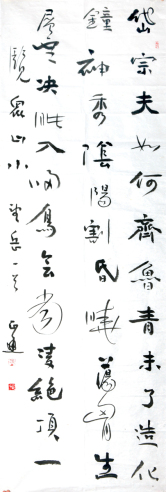 岱宗夫如何齊魯青未了造化
鐘神秀陰陽割昏曉蕩胸生
層雲决眦入歸鳥會當凌絕頂一
覽衆山小 望岳一首